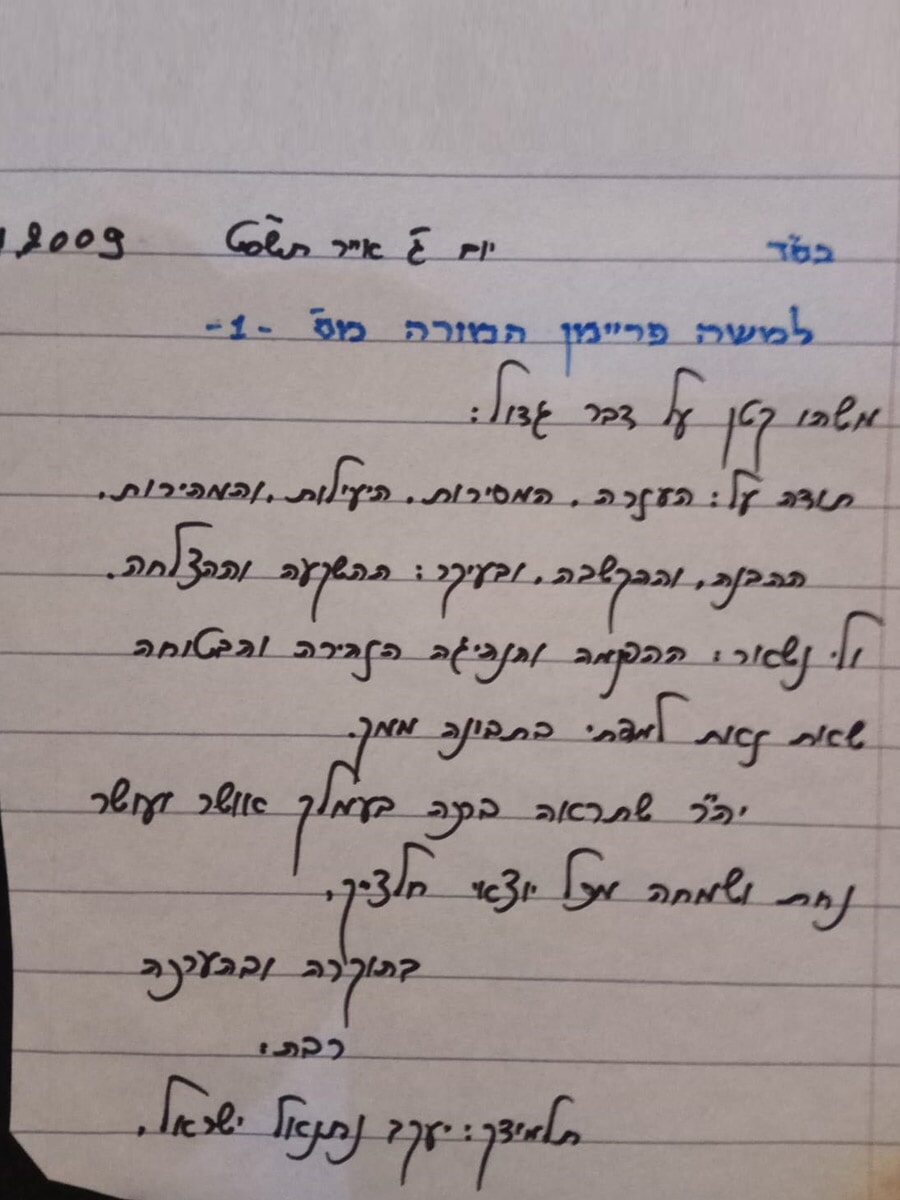 בס"ד יום ג' אייר תשס"ט 2009
למשה פריימן המורה מס' -1-
משהו קטן על דבר גדול:
תודה על: העזרה, המסירות, היעילות, והמהירות,
ההבנה, וההקשבה, ובעיקר: ההשקעה וההצלחה.
ולי נשאר: ההפנמה והנהיגה הזהירה והבטוחה
שאת זאת למדתי בתבונה ממך.
יה"ר שתראה ברכה בעמלך אושר ועושר
נחת ושמחה מכל יוצאי חלציך,
בתוקרה ובהערכה
רבה:
תלמידך: יעקב נתנאל ישראל.